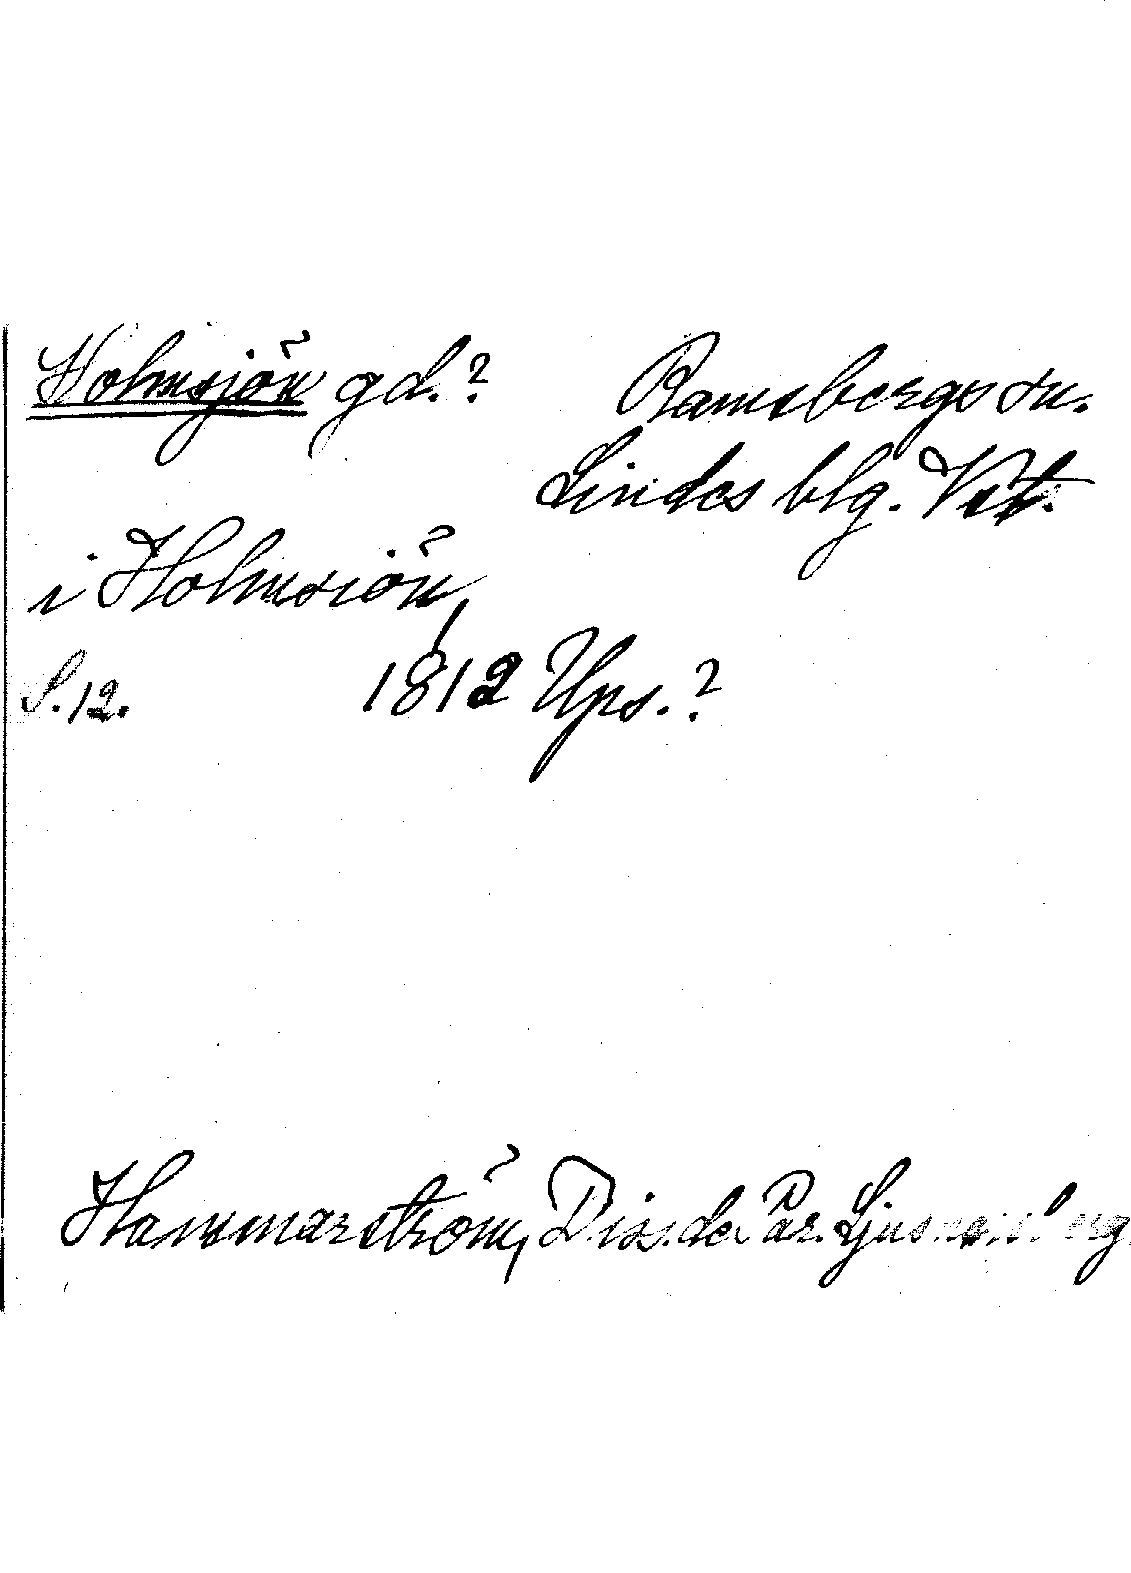 Holmsjön gd.? Ramsbergs sn.
Lindes blg. Vstl.
i Holmsiön,
S.12. 1812 Ups.?
Hammarström, Diss. de Par. Ljusnarsberg